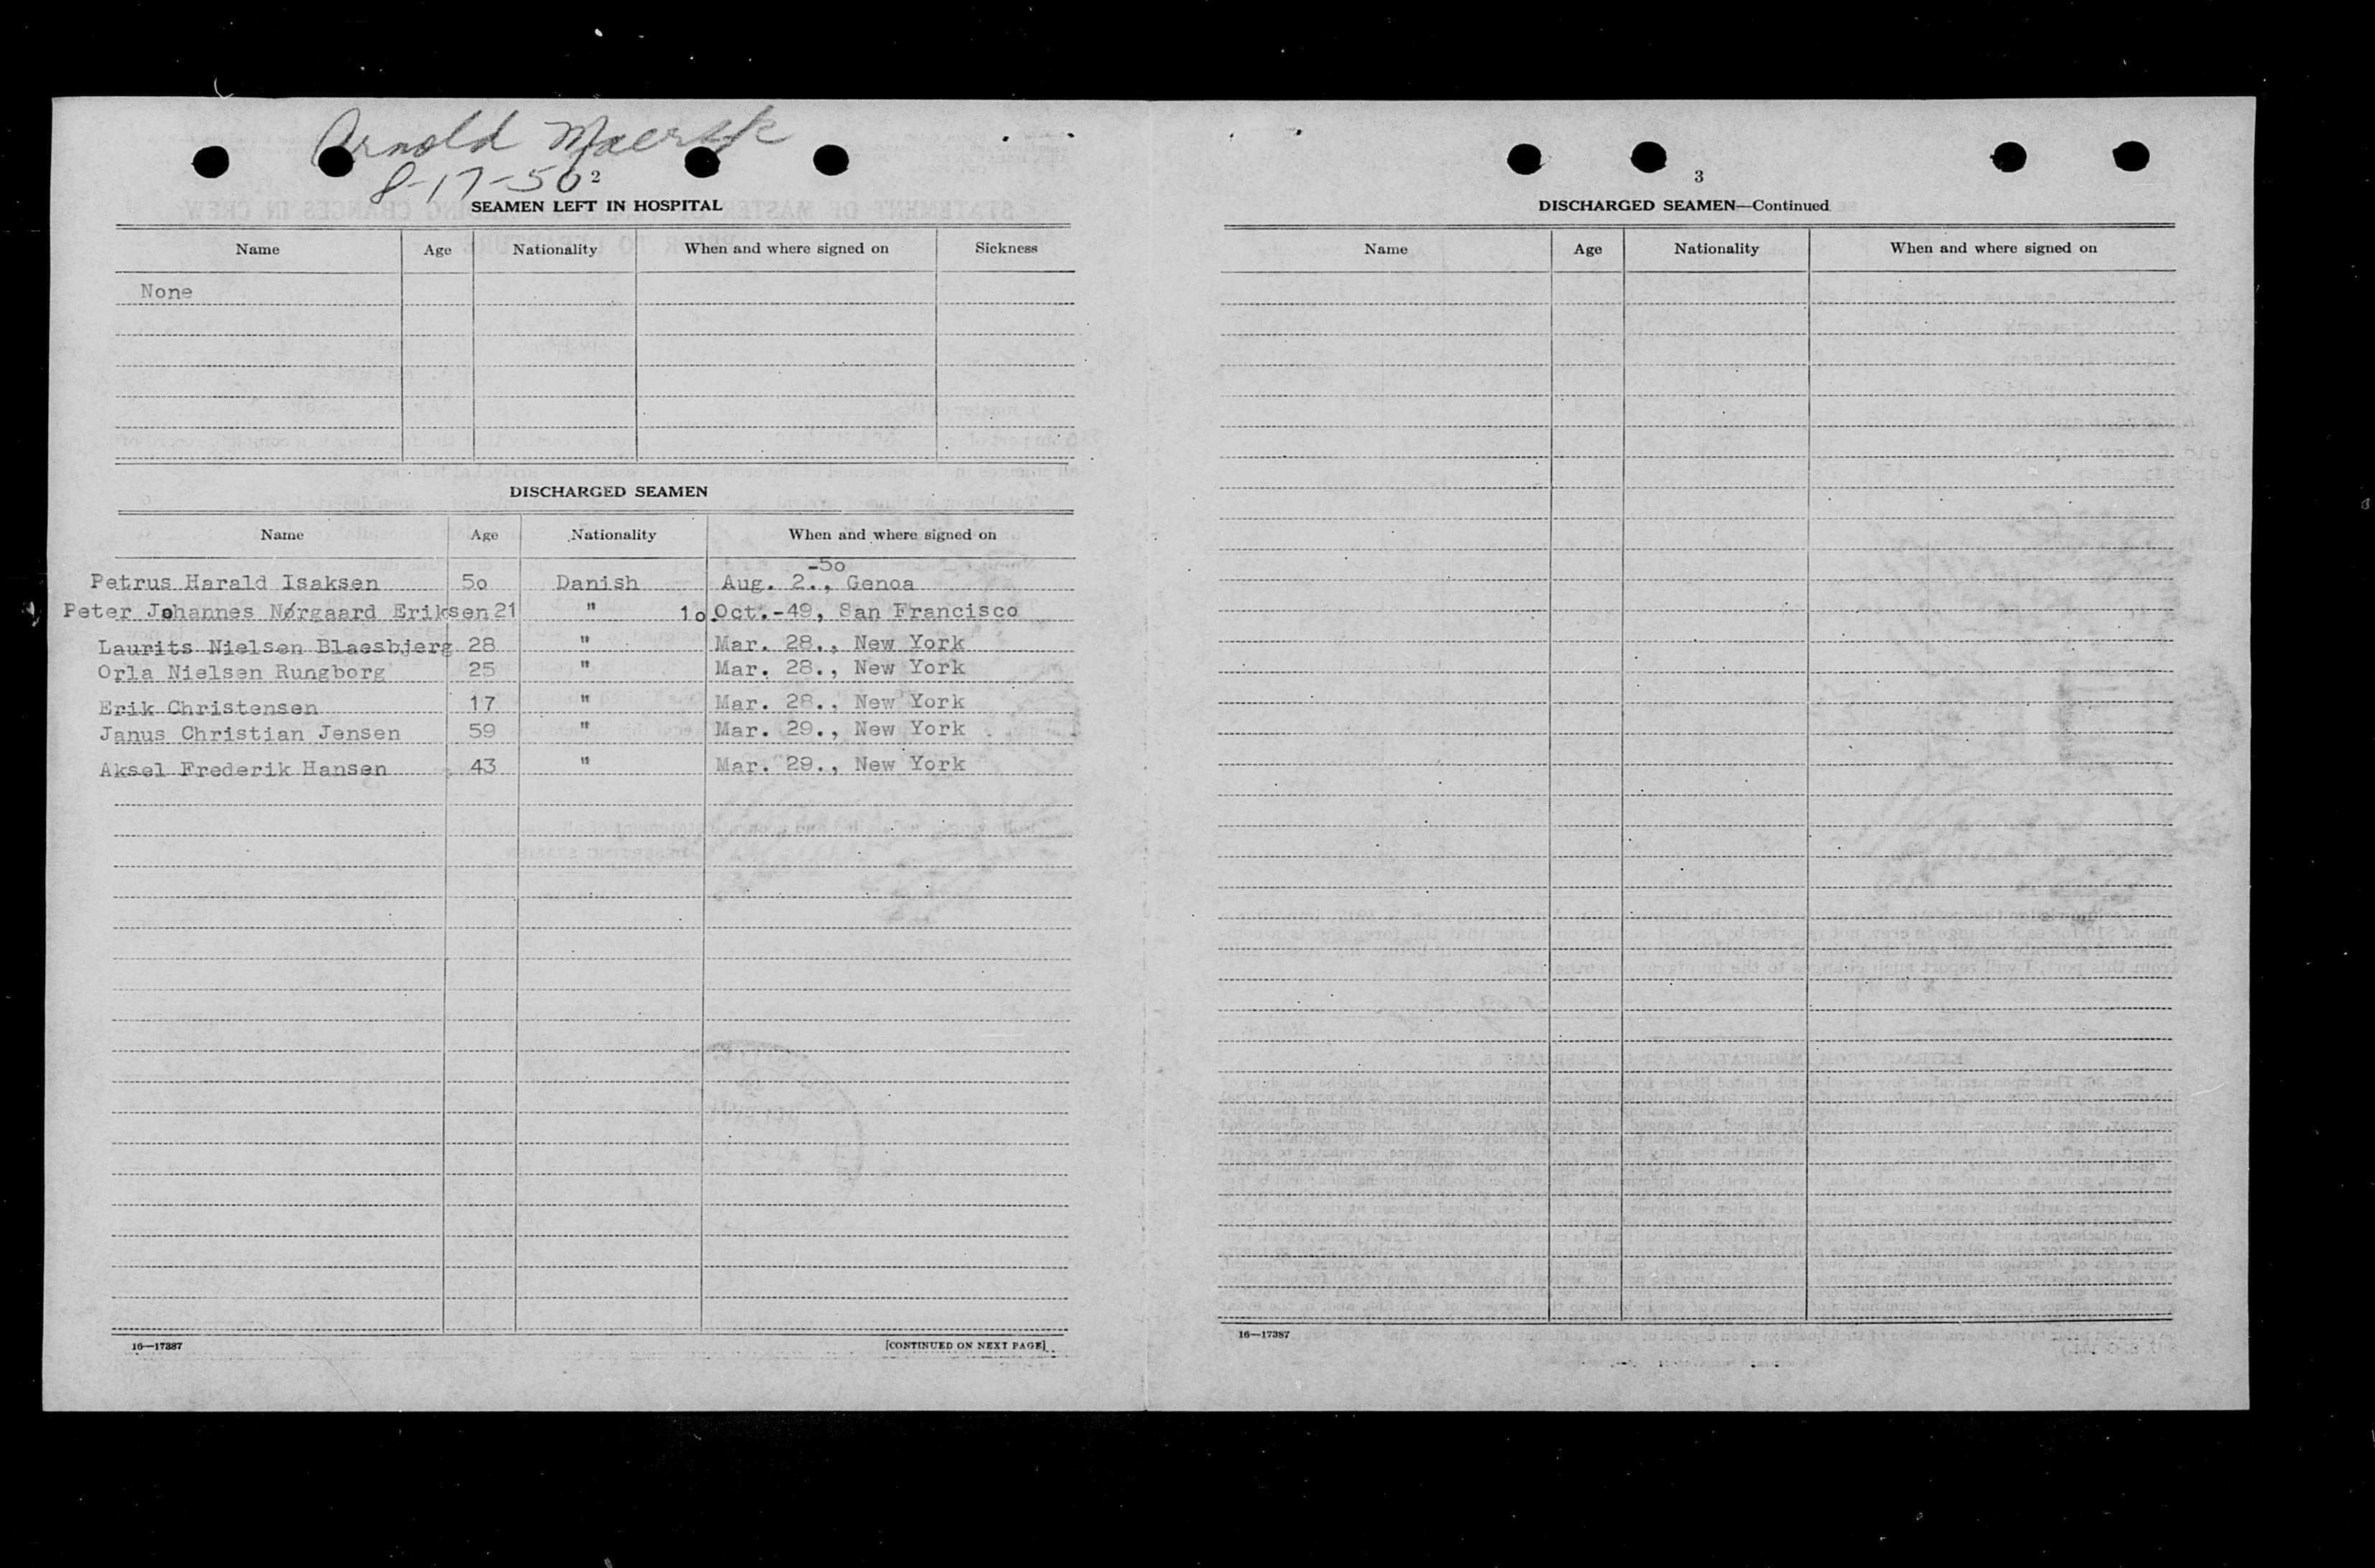 Arnold Maersk
8-17-50
2
SEAMEN LEFT IN HOSPITAL
Name Age Nationality When and where signed on Sickness
None
DISCHARGED SEAMEN
Name Age Nationality When and where signed on
-5o
Petrus Harald Isaksen 5o Danish Aug. 2., Genoa
Peter Johannes Nørgaard Eriksen 21 " 1o.Oct.-49, San Francisco
Laurits Nielsen Blaesbjerg 28 " Mar. 28., New York
Orla Nielsen Rungborg 25 " Mar. 28., New York
Erik Christensen 17 " Mar. 28., New York
Janus Christian Jensen 59 " Mar. 29., New York
Aksel Frederik Hansen 43 " Mar. 29., New York
16—17387 [CONTINUED ON NEXT PAGE]
3
DISCHARGED SEAMEN—Continued
Name Age Nationality When and where signed on
16—17387